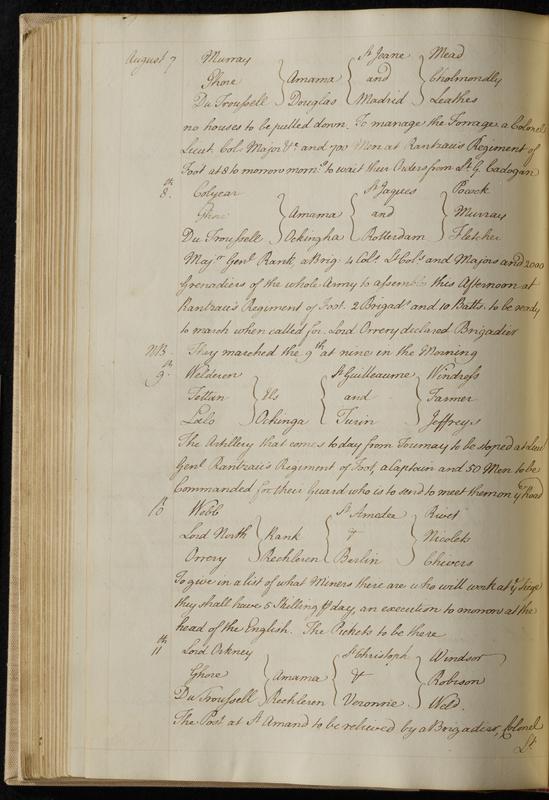 August 7 Murray St Jeane Mead
Ghore Amama and Cholmondly
Du Troussell Douglas Madrid Leathes
no houses to be pulled down. To manage the Forrage a Colonel
Lieut. Col. Major &c. and 700 Men at Rantzau's Regiment of
Foot at 8 to morrow morng. to wait their Orders from Lt. G. Cadogan
8th. Colyear St Jaques Pocock
Ghore Amama and Murray
Du Troussell Ockingha Rotterdam Fletcher
Majr. Genl. Rank a Brig: 4 Cols. Lt Cols. and Majors and 2000
Grenadiers of the whole Army to assemble this Afternoon at
Rantzau's Regiment of Foot. 2 Brigads. and 10 Batts. to be ready
to march when called for. Lord Orrery declared Brigadier
NB They marched the 9th at nine in the Morning
9th. Welderen St Guilleaume Windress
Tettau Els and Farmer
Lalo Ockinga Turin Jeffreys
The Artillery that comes to day from Tournay to be stoped at Lieut
Genl. Rantzau's Regiment of Foot, a Captain and 50 Men to be
Commanded for their Guard who is to send to meet them on ye. Road
10th Webb St Amedee Rivet
Lord North Rank & Nicolets
Orrery Rechleren Berlin Chivers
To give in a list of what Miners there are who will work at ye. Siege
they shall have 5 Shilling p day, an execution to morrow at the
head of the English. The Pickets to be there
11th Lord Orkney St Christoph Windsor
Ghore Amama & Robison
Du Troussell Rechleren Veronne Weld.
The Post at St Amand to be relieved by a Brigadier, Colonel
Lt.